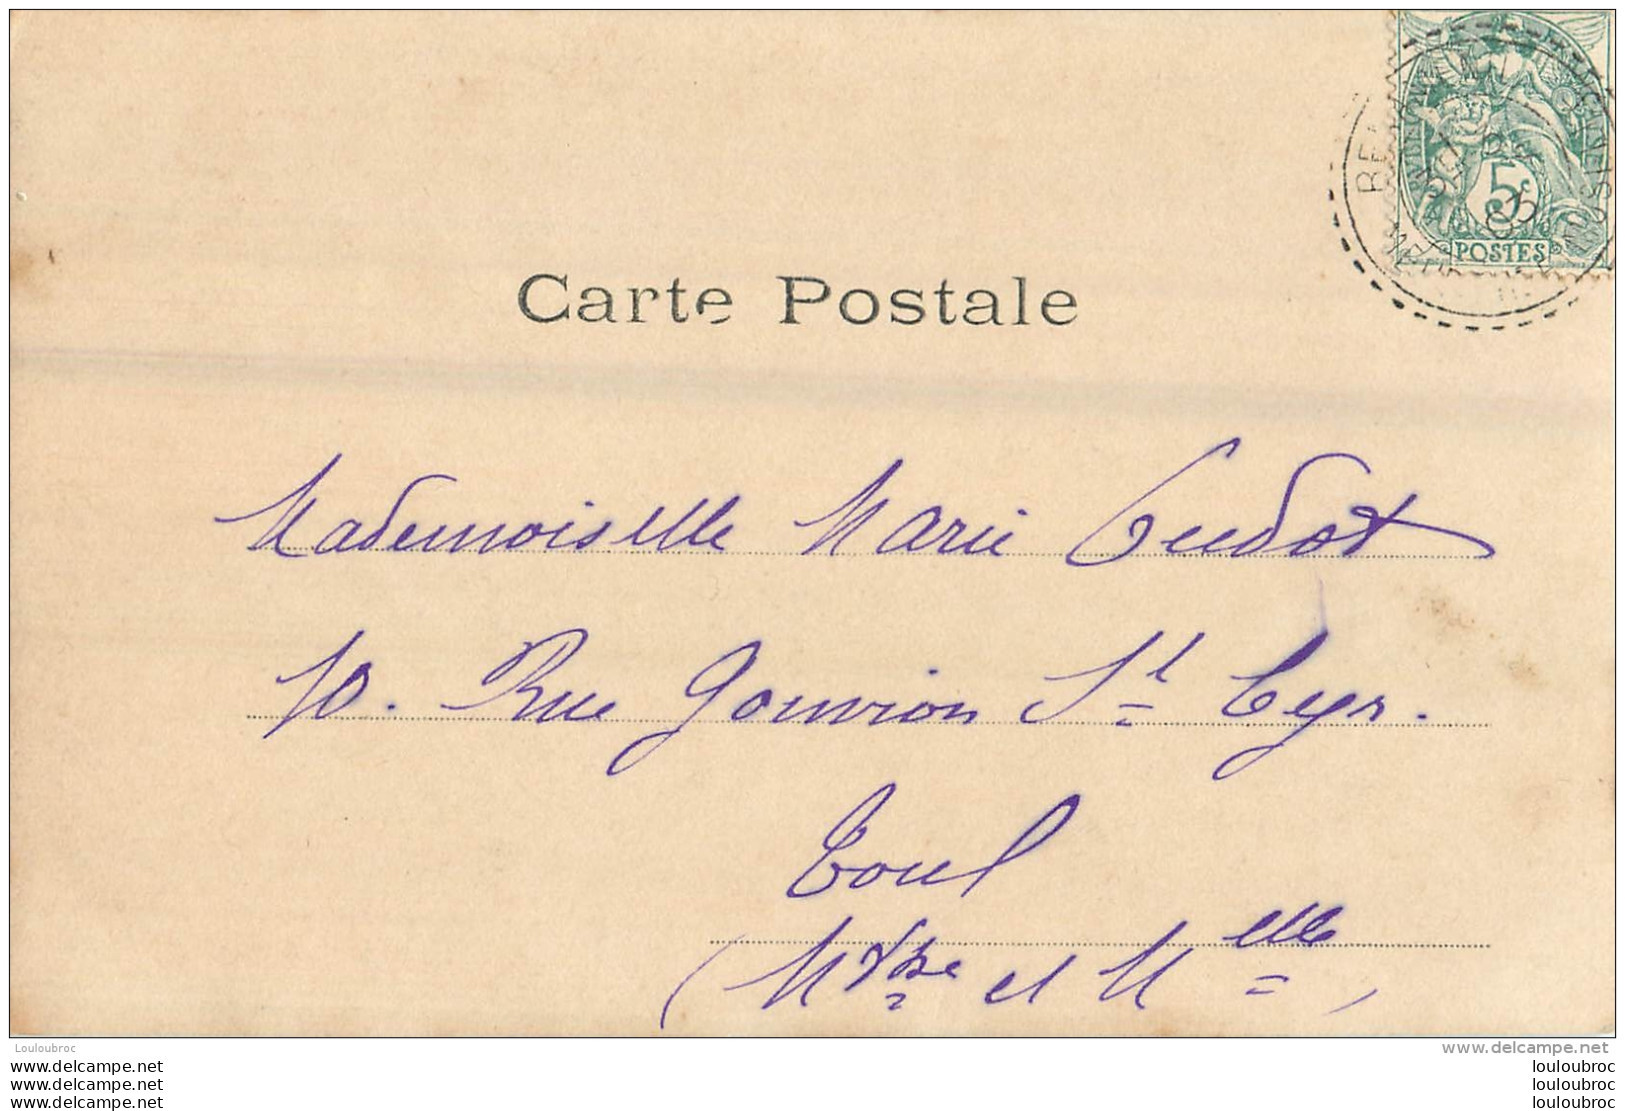 5c
POSTES
Carte Postale
Mademoiselle Marie Cudot
10. Rue Gouvion St Cyr.
Toul
(Mthe et Mlle)
Louloubroc
www.delcampe.net
www.delcampe.net louloubroc
www.delcampe.net louloubroc
www.delcampe.net louloubroc